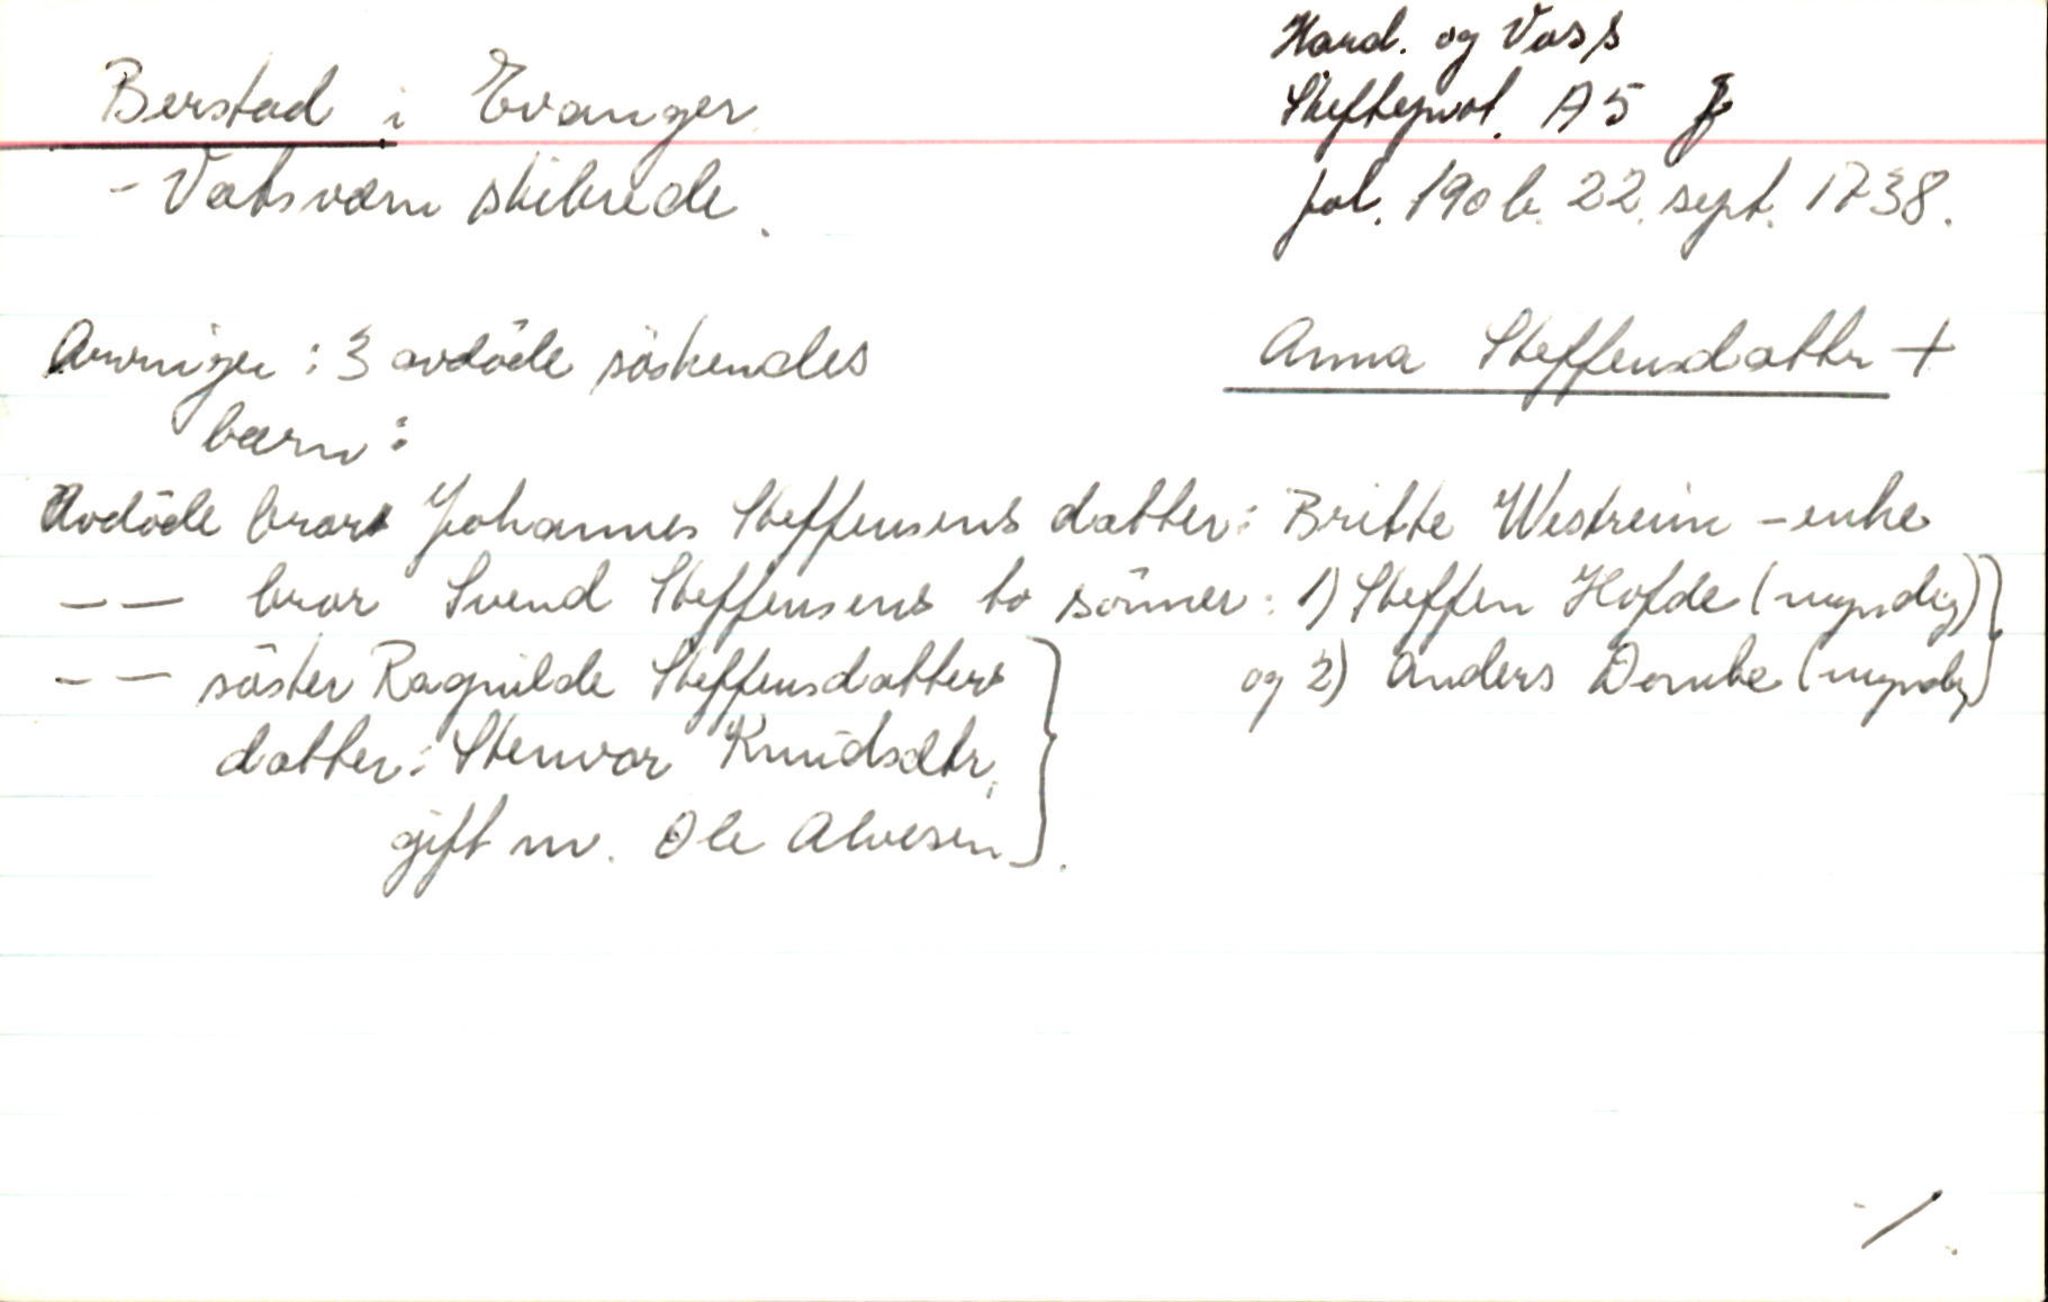 Hard. og Voss
Berstad i Evanger
Skifteprot. A5
- Vatsværn skibrede.
fol. 190 b. 22. sept. 1738.
Arvinger: 3 avdöde söskendes
Anna Steffensdatter +
bærn:
Avdöde brors Johannes Steffensens datter: Britte Westreim - enke
— — bror Svend Steffensens to sönner: 1) Steffen Hofde (myndig)
— — söster Ragnilde Steffensdatters
og 2) Anders Dembe (myndig)
datter: Stenvor Knudsdtr,
gift m. Ole Alvesen.